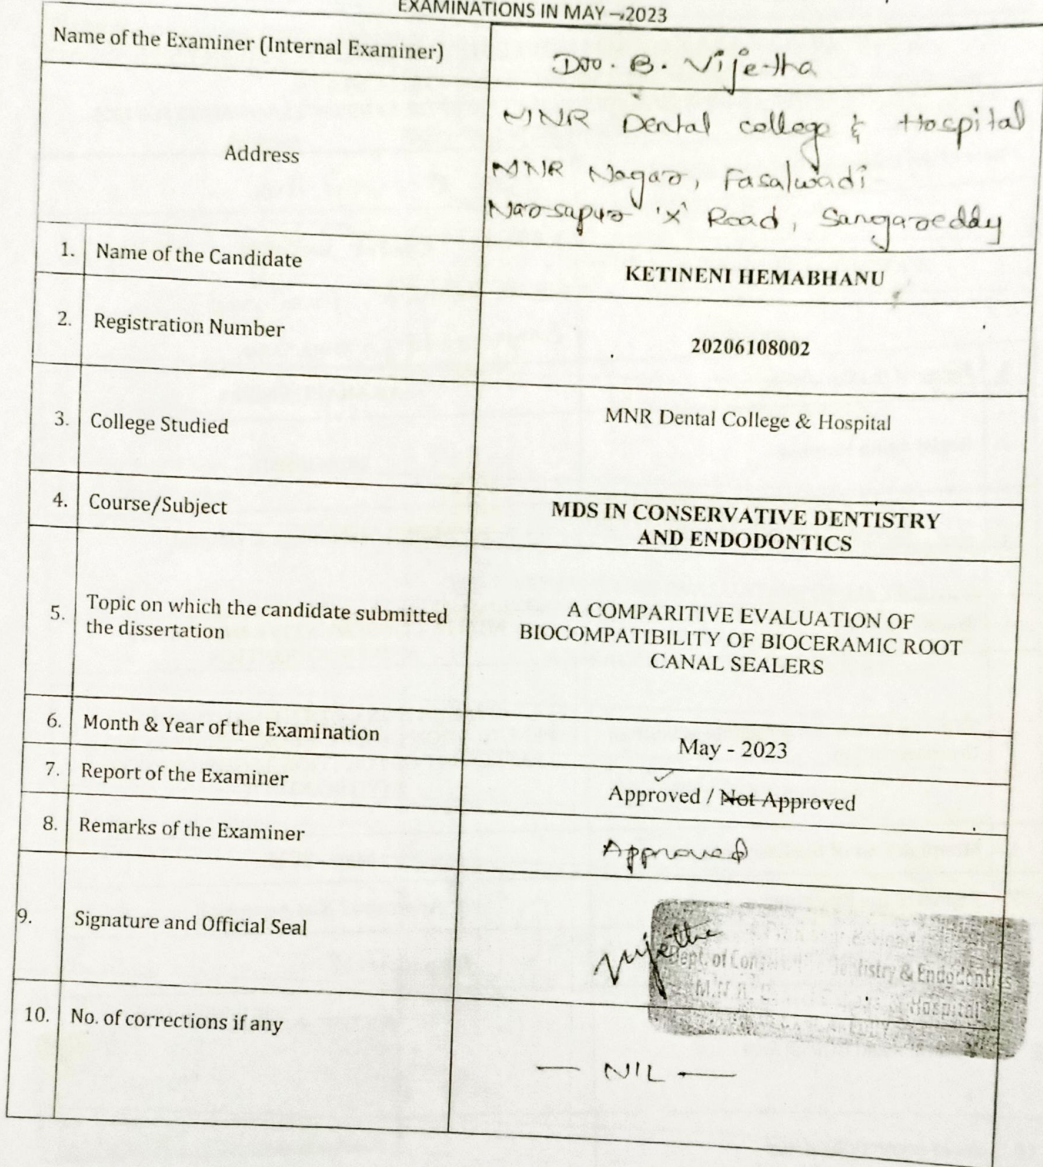 EXAMINATIONS IN MAY - 2023
Name of the Examiner (Internal Examiner)
Dr. B. Vijetha
Address
MNR Dental college & Hospital
MNR Nagar, Fasalwadi
Narsapur 'X' Road, Sangareddy
1. Name of the Candidate
KETINENI HEMABHANU
2. Registration Number
20206108002
3. College Studied
MNR Dental College & Hospital
4. Course/Subject
MDS IN CONSERVATIVE DENTISTRY
AND ENDODONTICS
5. Topic on which the candidate submitted
the dissertation
A COMPARITIVE EVALUATION OF
BIOCOMPATIBILITY OF BIOCERAMIC ROOT
CANAL SEALERS
6. Month & Year of the Examination
May - 2023
7. Report of the Examiner
Approved / Not Approved
8. Remarks of the Examiner
Approved
9. Signature and Official Seal
Vijetha
Dept. of Conservative Dentistry & Endodontics
M.N.R. Hospital
10. No. of corrections if any
— NIL —